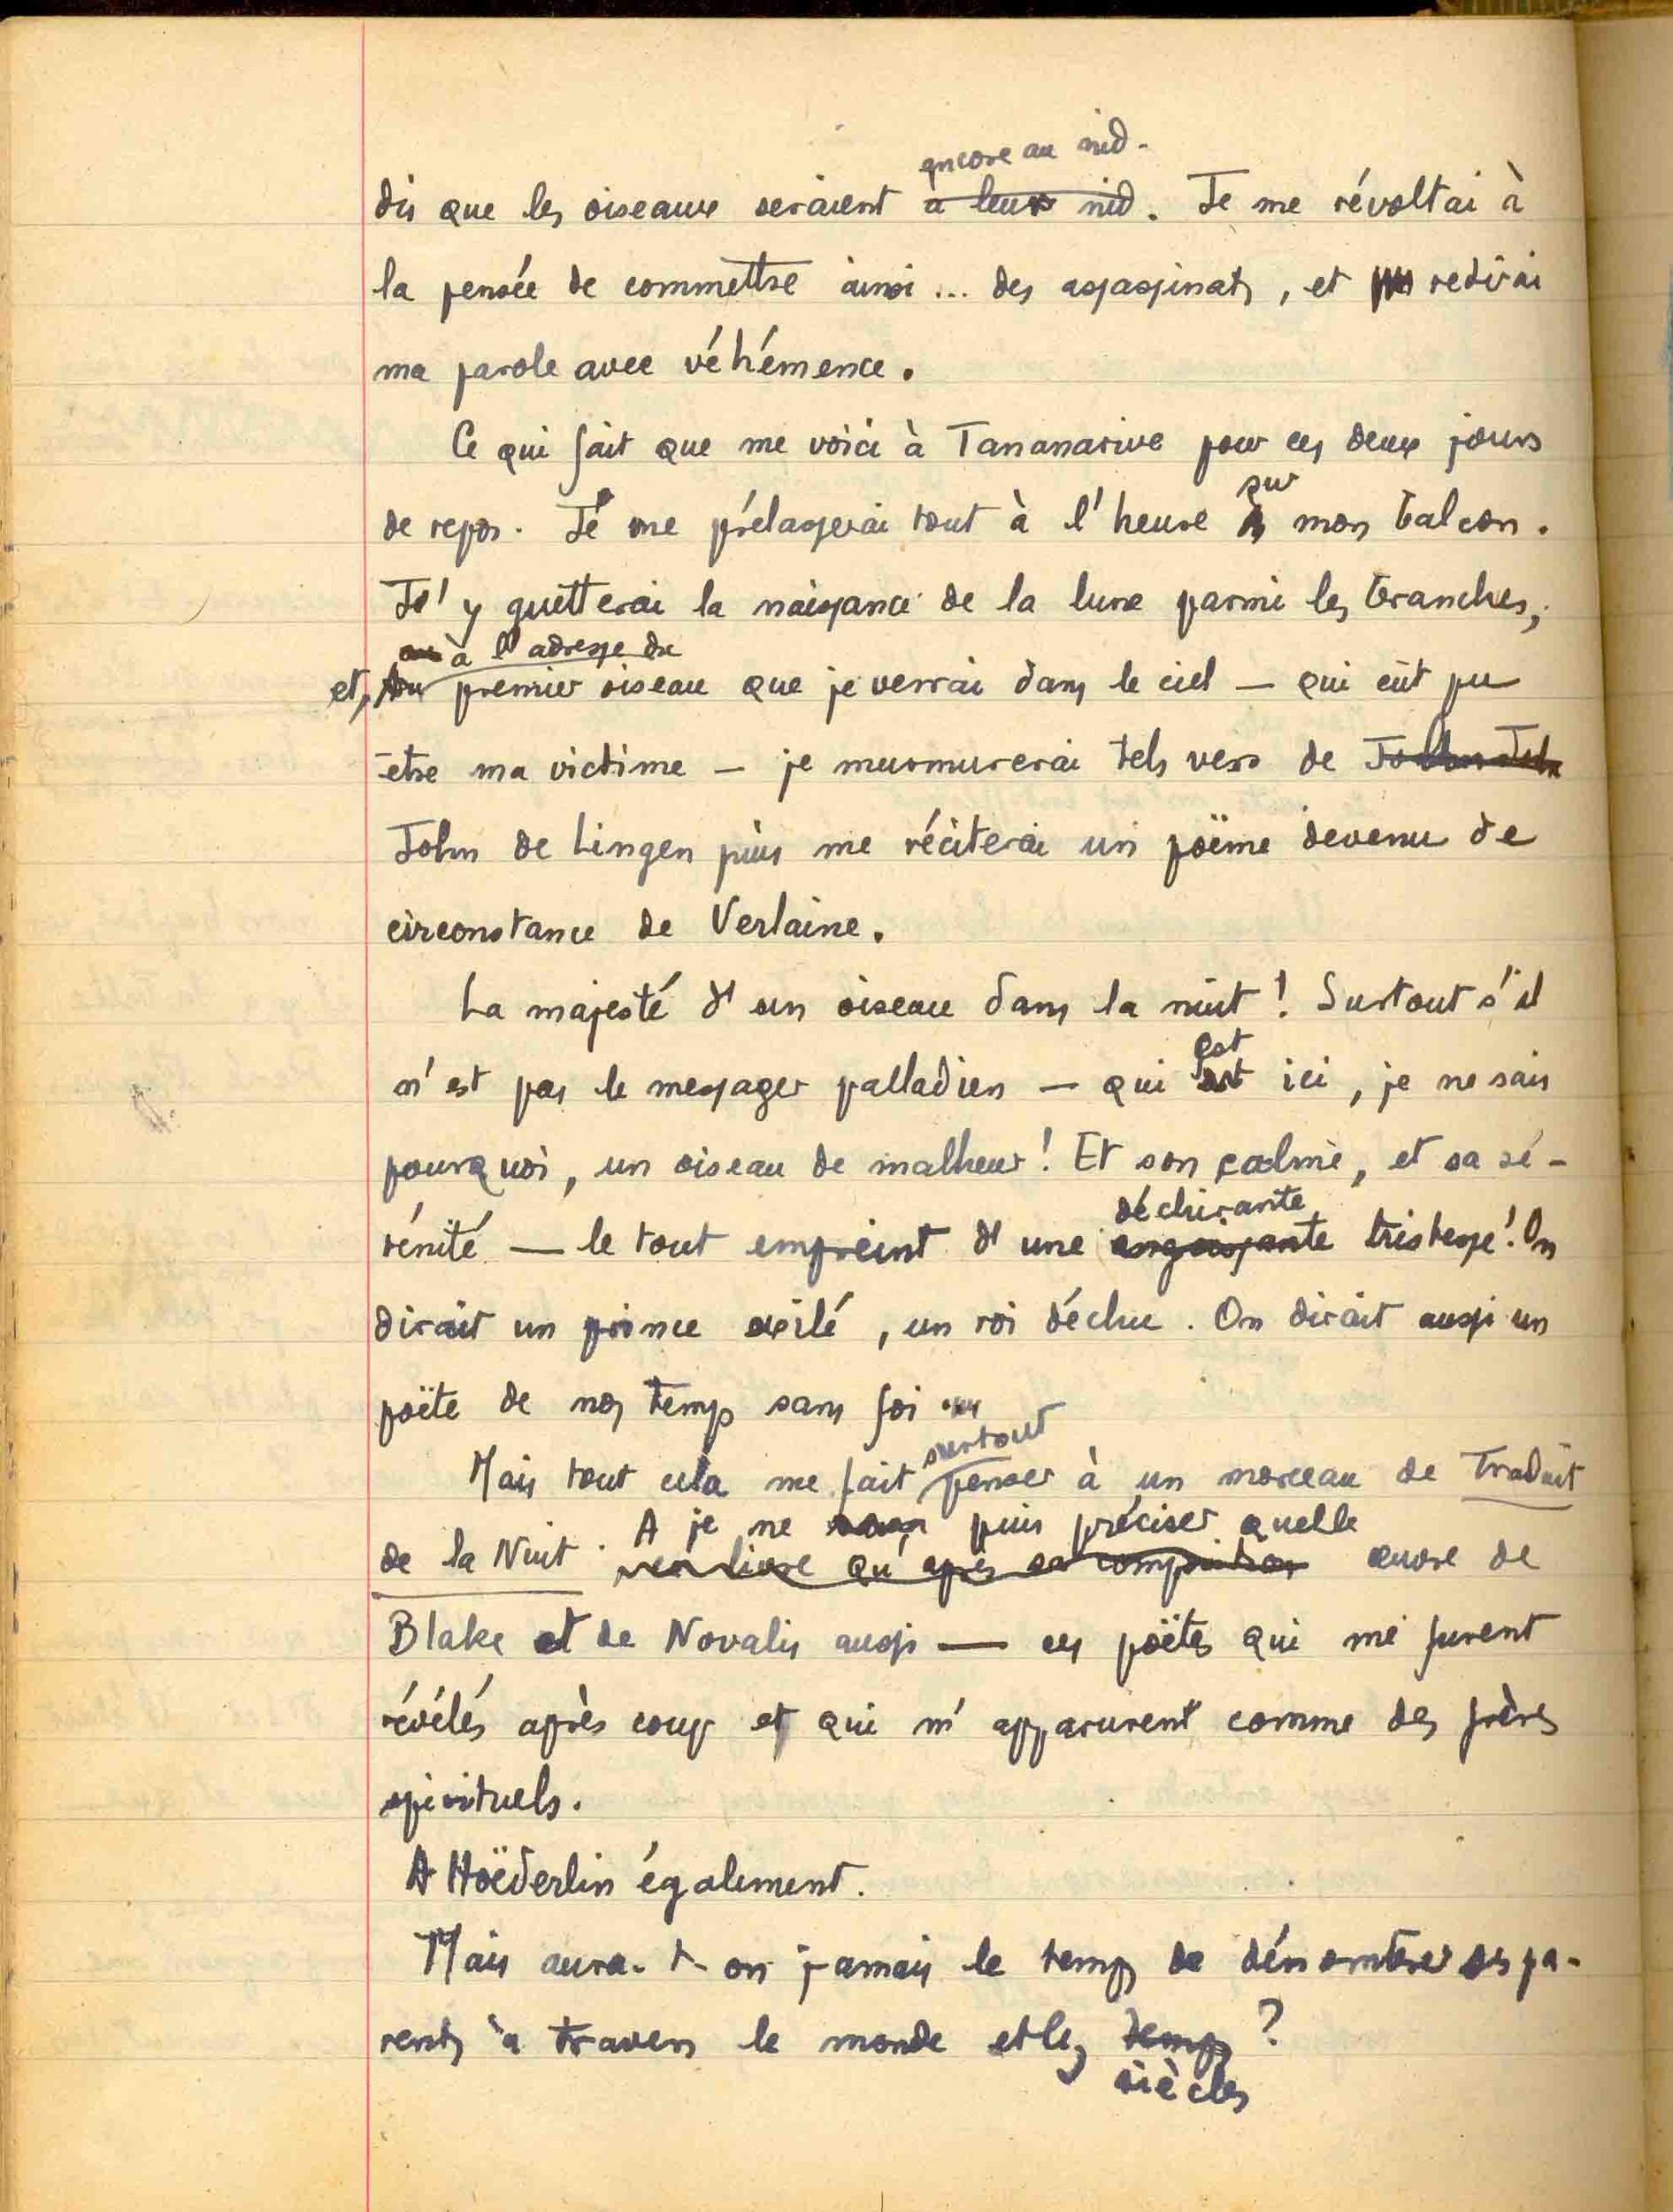 encore au nid.
dis que les oiseaux seraient à leurs nid. Je me révoltai à
la pensée de commettre ainsi... des assassinats, et retirai
ma parole avec véhémence.
Ce qui fait que me voici à Tananarive pour ces deux jours
sur
de repos. Je me prélasserai tout à l'heure à mon balcon.
J'y guetterai la naissance de la lune parmi les branches,
à l'adresse du
et, Au premier oiseau que je verrai dans le ciel — qui eût pu
être ma victime — je murmurerai tels vers de John
John de Lingen puis me réciterai un poëme devenu de
circonstance de Verlaine.
La majesté d'un oiseau dans la nuit ! Surtout s'il
est
n'est pas le messager palladien — qui ici, je ne sais
pourquoi, un oiseau de malheur ! Et son calme, et sa sé-
déchirante
rénité — le tout empreint d'une angoissante tristesse ! On
dirait un prince exilé, un roi déchu. On dirait aussi un
poëte de nos temps sans foi ...
surtout
Mais tout cela me fait penser à un morceau de Traduit
A je ne puis préciser quelle
de la Nuit. livre qu'après sa composition œuvre de
Blake et de Novalis aussi — ces poëtes qui me furent
révélés après coup et qui m'apparurent comme des frères
spirituels.
A Hoëderlin également.
Mais aura-t-on jamais le temps de dénombrer ses pa-
rents à travers le monde et les temps ?
siècles